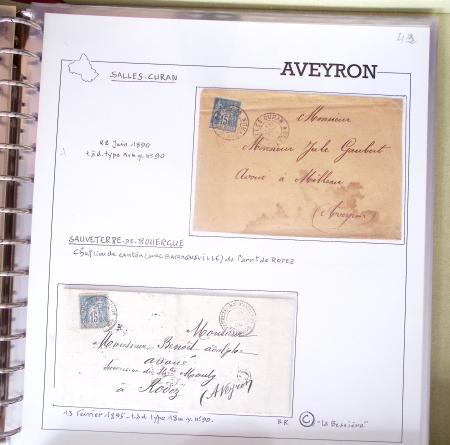 43
SALLES-CURAN
AVEYRON
22 Juin 1890
t.à.d. type 18m q. n°90
Monsieur
Monsieur Jule Gaubert
Avoué à Millau
(Aveyron)
SAUVETERRE-DE-ROUERGUE
Chef lieu de canton (avec BARAQUEVILLE) de l'arrt de RODEZ
Monsieur
Monsieur Benoit adolphe
avoué
à Rodez
(Aveyron)
13 février 1895 - t.à.d. type 18m q. n°90.
B.R.
© "La Bessière"